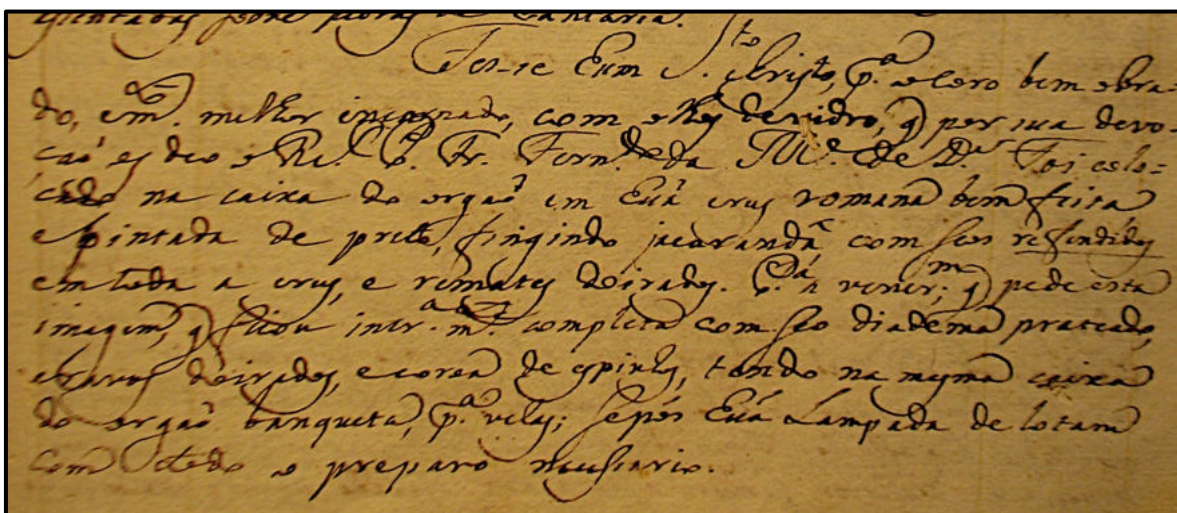 sentadas sobre pedras de cantaria.
Fes-se hum S.to Christo, p.ª o coro bem obra=
do, e m.to milhor incarnado, com olhos de vidro, q̃ por sua devo=
caõ os deo o R.do P. Fr. Fern.do da M.e de D.s Foi colo=
cado na caixa do orgaõ em huã crus romana bem feita
e pintada de preto, fingindo jacarandá com seos refendidos
em toda a crus, e remates doirados. P.ª a vener.m q̃ pede esta
imagem, q̃ ficou intr.ª m.te completa com seo diadema prateado,
cravos doirados, e coroa de espinhos, tendo na mesma caixa
do orgaõ banqueta, p.ª velas; se pós huã Lampada de lotam
com todo o preparo necessario.